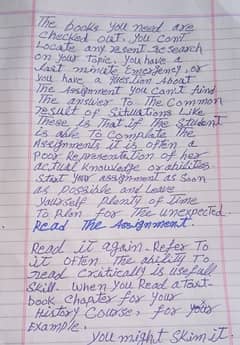 The books you need are
checked out. You can't
Locate any resent research
on your Topic. You have a
Last minute Emergency, or
you have a question About
The Assignment you can't find
The answer To. The Common
result of Situations Like
These is That if The Student
is able To complete the
Assignments it is often a
Poor Representation of her
actual Knowledge or abilities.
Start your assignment as Soon
as possible and Leave
yourself plenty of time
To plan for The unexpected.
Read The Assignment.
Read it again. Refer To
it often The ability To
read Critically is usefull
Skill. when you Read a Text-
book Chapter for your
History Course, for your
Example.
you might Skim it.